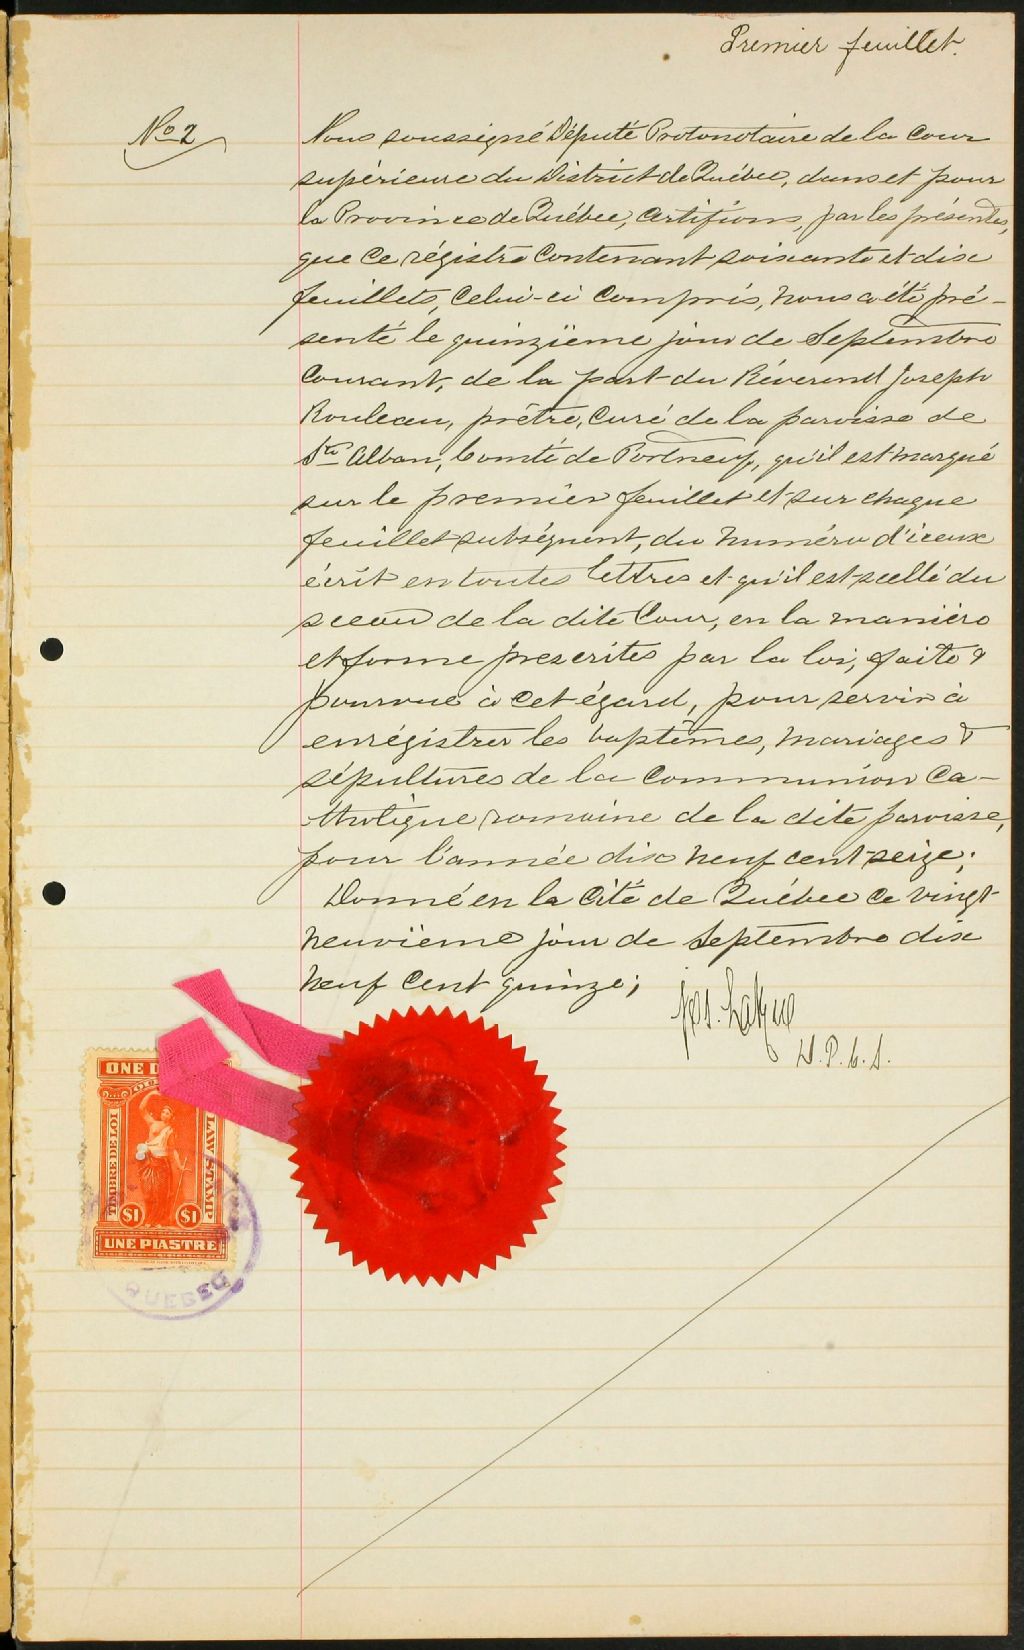 Premier feuillet.
No 2
Nous soussigné Député Protonotaire de la Cour
supérieure du District de Québec, dans et pour
la Province de Québec, Certifions, par les présentes,
que ce régistre Contenant soixante et dix
feuillets, Celui-ci Compris, nous a été pré-
senté le quinzïeme jour de Septembre
Courant, de la part du Révérend Joseph
Rouleau, prêtre, Curé de la paroisse de
St Alban, Comté de Portneuf, qu'il est marqué
sur le premier feuillet et sur chaque
feuillet subséquent, du numéro d'iceux
écrit en toutes lettres et qu'il est scellé du
sceau de la dite Cour, en la manière
et forme prescrites par la loi, faite &
pourvue à cet égard, pour servir à
enrégistrer les baptêmes, mariages &
sépultures de la Communion Ca-
tholique romaine de la dite paroisse,
pour l'année dix neuf cent seize;
Donné en la Cité de Québec ce vingt
neuvïeme jour de Septembre dix
neuf Cent quinze;
D.P.C.S.
ONE
TIMBRE DE LOI
LAW STAMP
$1 $1
UNE PIASTRE
QUEBEC